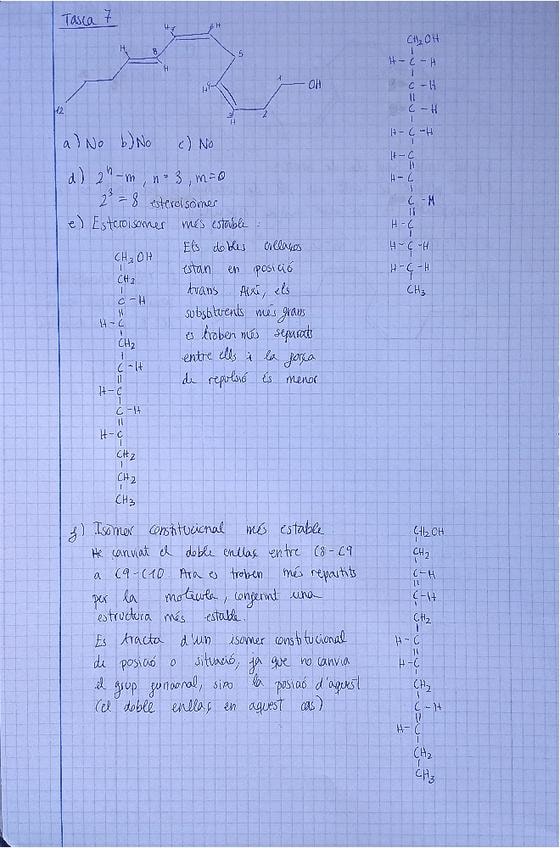 Tasca 7
H
H
H
8
H
5
H
3
H
2
1
OH
12
CH2OH
H-C-H
C-H
C-H
H-C-H
H-C
H-C
C-H
H-C
H-C-H
H-C-H
CH3
a) No b) No c) No
d) 2^n-m, n=3, m=0
2^3 = 8 esteroisomer
e) Esteroisomer més estable:
CH2OH
CH2
C-H
H-C
CH2
C-H
H-C
C-H
H-C
CH2
CH2
CH3
Els dobles enllaços
estan en posició
trans Així, els
substituents més grans
es troben més separats
entre ells i la força
de repulsió és menor
f) Isomer constitucional més estable
He canviat el doble enllaç entre C8-C9
a C9-C10 Ara es troben més repartits
per la molecula, conferint una
estructura més estable.
Es tracta d'un isomer constitucional
de posició o situació, ja que no canvia
el grup funcional, sino la posició d'aquest
(el doble enllaç en aquest cas)
CH2OH
CH2
C-H
C-H
CH2
H-C
H-C
CH2
C-H
H-C
CH2
CH3